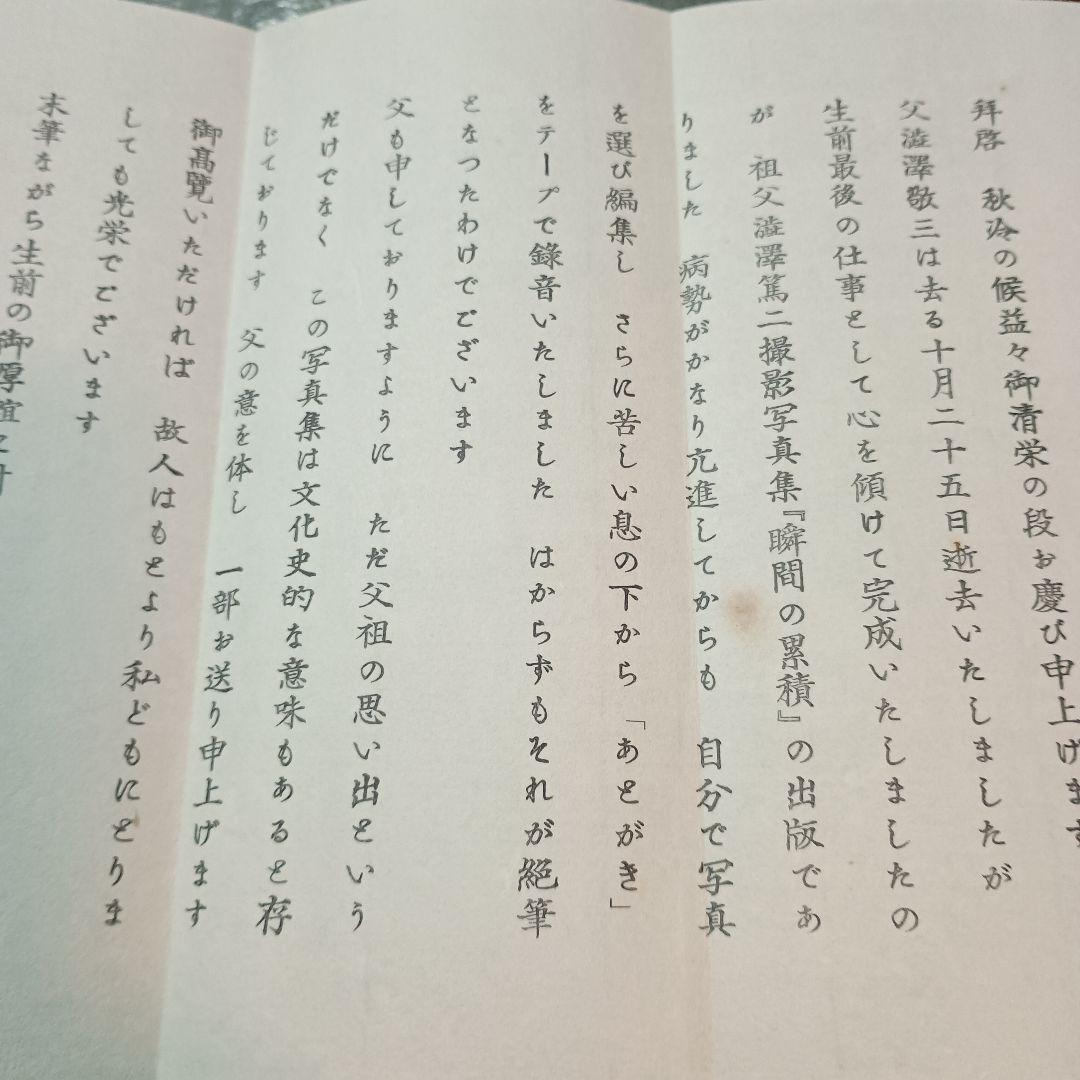 拝啓　秋冷の候益々御清栄の段お慶び申上げます
父澁澤敬三は去る十月二十五日逝去いたしましたが
生前最後の仕事として心を傾けて完成いたしましたの
が　祖父澁澤篤二撮影写真集『瞬間の累積』の出版であ
りました　病勢がかなり亢進してからも　自分で写真
を選び編集し　さらに苦しい息の下から　「あとがき」
をテープで録音いたしました　はからずもそれが絶筆
となつたわけでございます
父も申しておりますように　ただ父祖の思い出という
だけでなく　この写真集は文化史的な意味もあると存
じております　父の意を体し　一部お送り申上げます
御高覽いただければ　故人はもとより私どもにとりま
しても光栄でございます
末筆ながら生前の御厚誼に